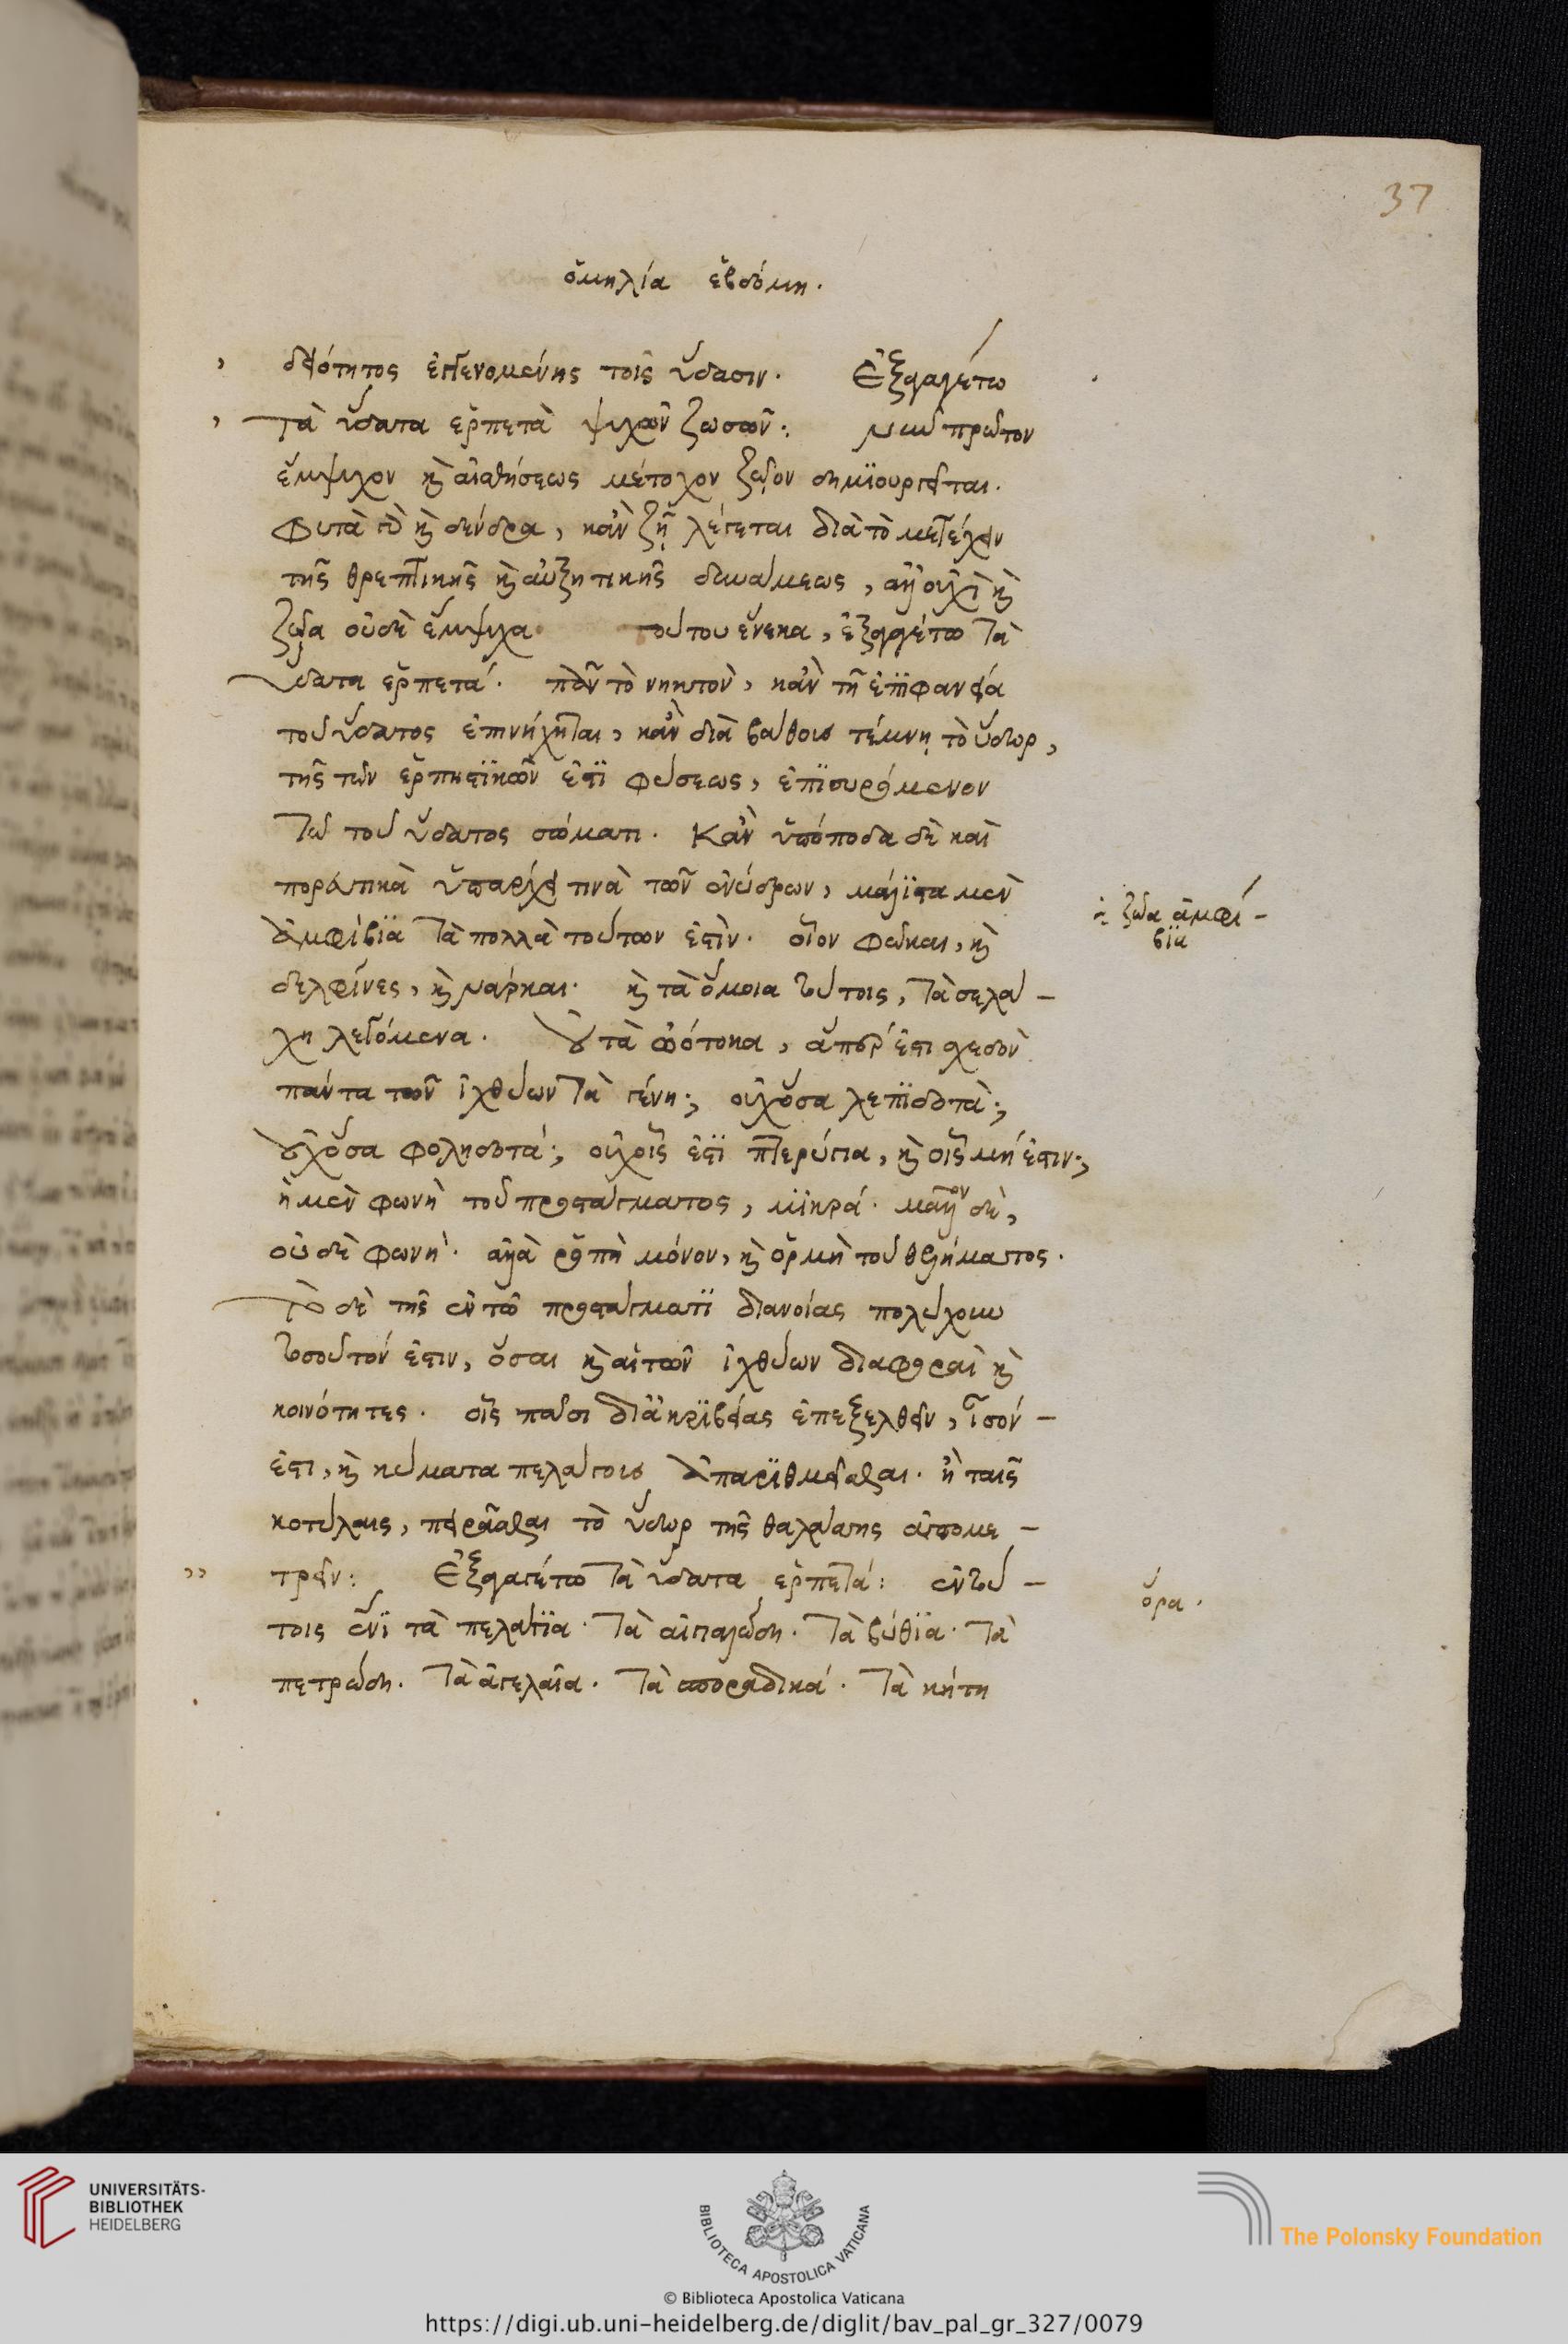 37
ὁμηλία ἑβδόμη.
, δειότητος ἐπιγενομένης τοῖς ὕδασιν. Ἐξαγαγέτω
, τὰ ὕδατα ἑρπετὰ ψυχῶν ζωσῶν: νῦν πρῶτον
ἔμψυχον καὶ αἰσθήσεως μέτοχον ζῶον δημϊουργεῖται.
Φυτὰ γὰρ καὶ δένδρα, κἂν ζῆν λέγεται διὰ τὸ μετέχειν
τῆς θρεπτικῆς καὶ αὐξητικῆς δυνάμεως, ἀλλ' οὐχὶ καὶ
ζῶα οὐδὲ ἔμψυχα. τούτου ἕνεκα, ἐξαγαγέτω τὰ
ὕδατα ἑρπετά. πᾶν τὸ νηκτὸν, κἂν τῇ ἐπϊφανεία
τοῦ ὕδατος ἐπινήχηται, κἂν διὰ βάθους τέμνῃ τὸ ὕδωρ,
τῆς τῶν ἑρπηστϊκῶν ἐστϊ φύσεως, ἐπϊσυρόμενον
τῶ τοῦ ὕδατος σώματι. Κἂν ὑπόποδα δὲ καὶ
πορευτικὰ ὑπάρχει τινὰ τῶν ἐνύδρων, μάλϊστα μὲν
ἀμφίβϊα τὰ πολλὰ τούτων ἐστὶν. οἷον φῶκαι, καὶ
δελφῖνες, καὶ νάρκαι. καὶ τὰ ὅμοια τούτοις, τὰ σελά-
χη λεγόμενα. οὐ τὰ ὠότοκα, ἅπερ ἐστι σχεδὸν
πάντα τῶν ἰχθύων τὰ γένη; οὐχ ὅσα λεπϊδωτὰ;
οὐχ ὅσα φοληδωτά; οὐχ οἷς ἐστϊ πτερύγια, καὶ οἷς μή ἐστιν;
ἡ μὲν φωνὴ τοῦ προστάγματος, μϊκρά. μᾶλλον δὲ,
οὐδὲ φωνὴ. ἀλλὰ ῥοπὴ μόνον, καὶ ὁρμὴ τοῦ θελήματος.
Τὸ δὲ τῆς ἐν τῶ προστάγματϊ διανοίας πολύχουν
τοσοῦτόν ἐστιν, ὅσαι καὶ αἱ τῶν ἰχθύων διαφοραὶ καὶ
κοινότητες. οἷς πᾶσι δι' ἀκρϊβείας ἐπεξελθεῖν, ἶσόν -
ἐστι, καὶ κύματα πελάγους ἀπαρϊθμεῖσθαι. ἢ ταῖς
κοτύλαις, πειρᾶσθαι τὸ ὕδωρ τῆς θαλάσσης ἀπομε -
,, τρεῖν: Ἐξαγαγέτω τὰ ὕδατα ἑρπετά: ἐν τού -
τοις ἔνϊ τὰ πελάγϊα. τὰ αἰγιαλώδη. τὰ βύθϊα. τὰ
πετρώδη. τὰ ἀγελαῖα. τὰ σποραδικά. τὰ κήτη
ζῶα ἀμφί -
βϊα
ὅρα.
UNIVERSITÄTS-
BIBLIOTHEK
HEIDELBERG
BIBLIOTECA APOSTOLICA VATICANA
The Polonsky Foundation
© Biblioteca Apostolica Vaticana
https://digi.ub.uni-heidelberg.de/diglit/bav_pal_gr_327/0079